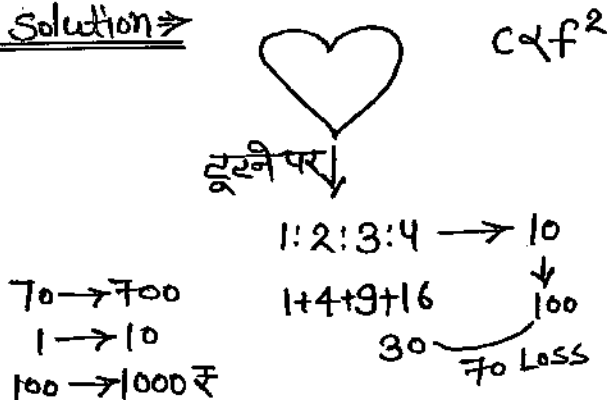 Solution ⇒
C∝f²
टूटने पर ↓
1:2:3:4 → 10
↓
1+4+9+16 100
30 70 Loss
70→700
1→10
100→1000₹